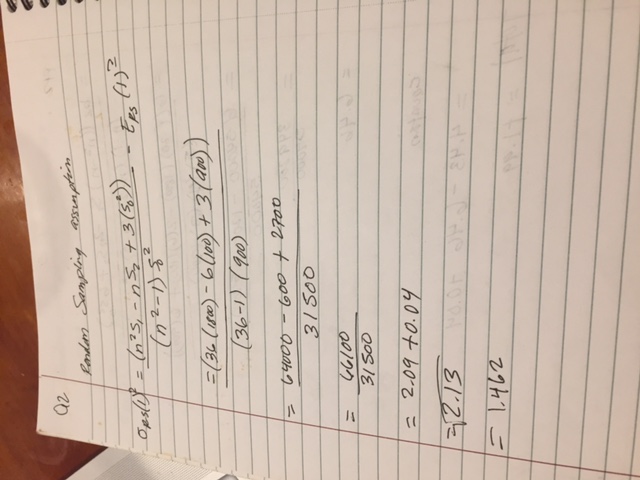 Q2
Random Sampling assumption
σRS(1)² = (n²S₁ - nS₂ + 3(S₀²)) / (n²-1) S₀² - ERS(1)²
= (36(1800) - 6(100) + 3(900)) / (36-1)(900)
= 64000 - 600 + 2700 / 31500
= 66100 / 31500
= 2.09 + 0.04
= √2.13
= 1.462